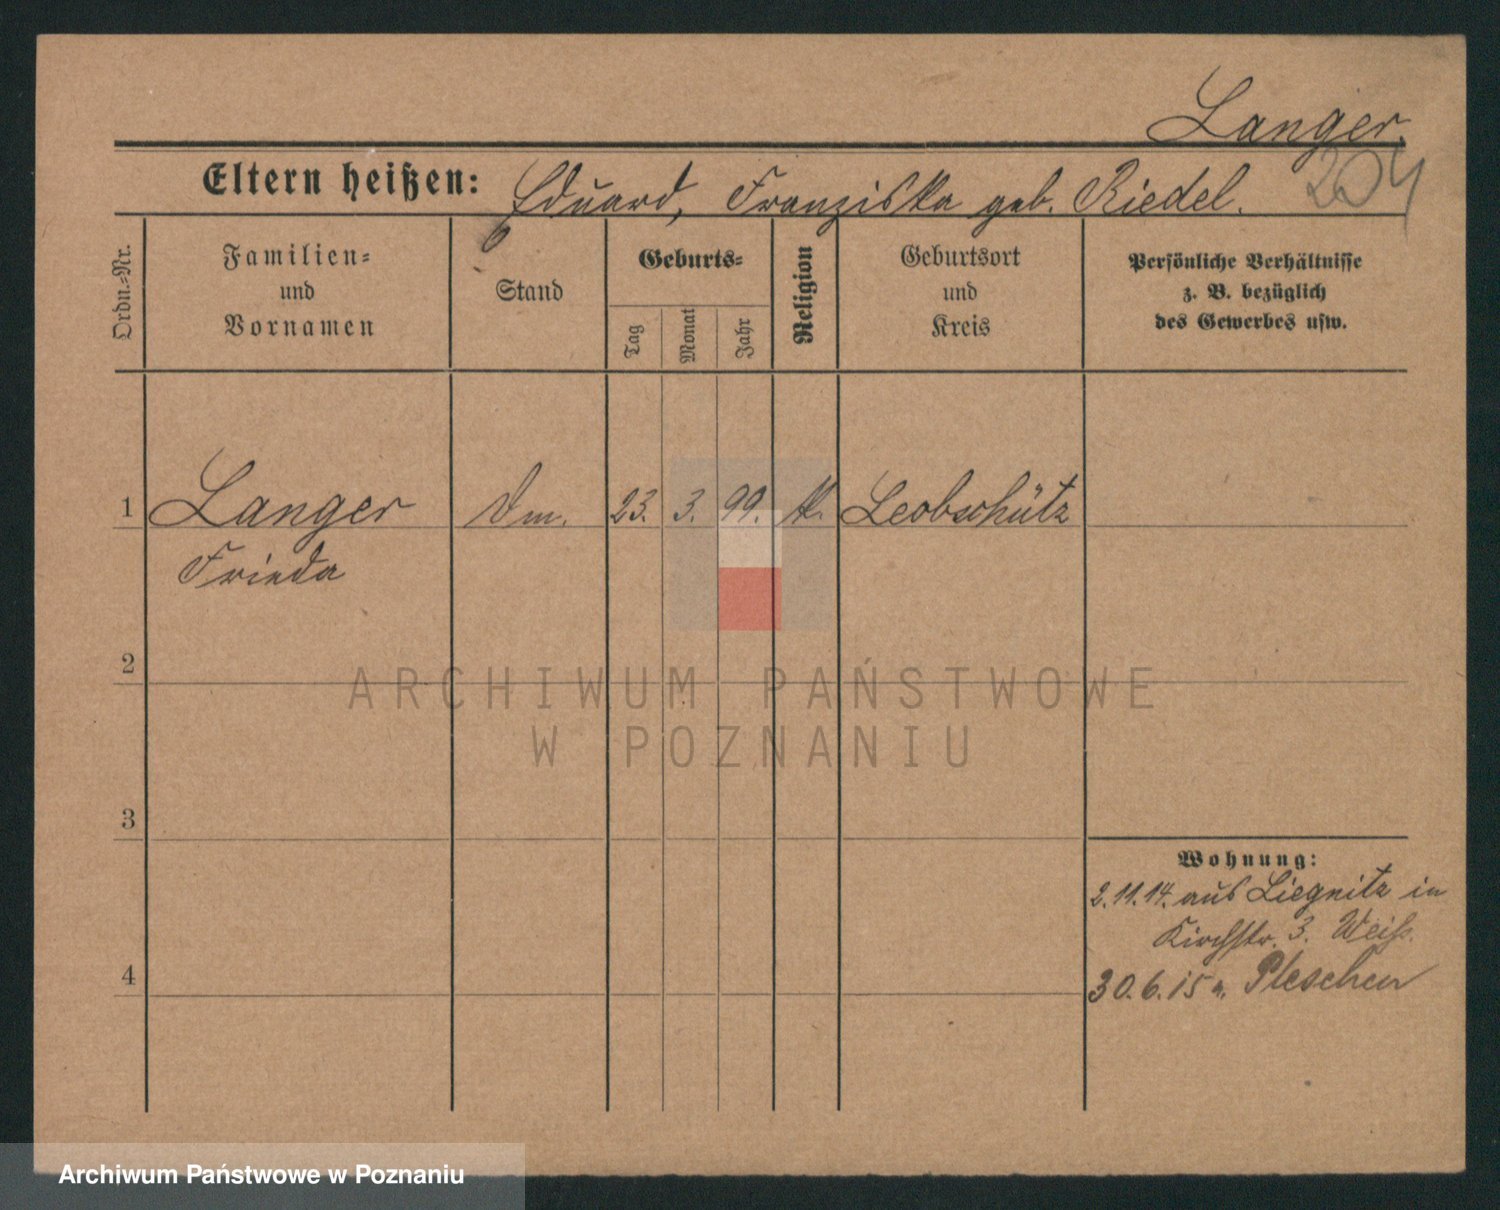 Langer.
204
Eltern heißen: Eduard, Franziska geb. Riedel.
Ordn.-Nr.
Familien-
und
Vornamen
Stand
Geburts-
Tag
Monat
Jahr
Religion
Geburtsort
und
Kreis
Persönliche Verhältnisse
z. B. bezüglich
des Gewerbes usw.
1 Langer Dm. 23. 3. 99. k. Leobschütz
Frieda
2
ARCHIWUM PAŃSTWOWE
W POZNANIU
3
Wohnung:
2.11.14. aus Liegnitz in
Kirchstr. 3. Weiß.
4
30.6.15 n. Pleschen
Archiwum Państwowe w Poznaniu